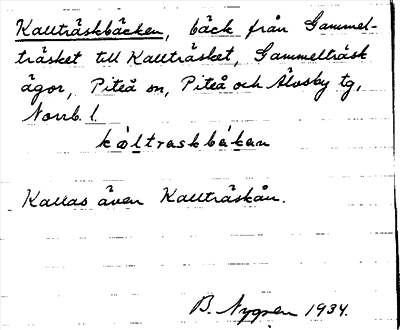 Kallträskbäcken, bäck från Gammel-
träsket till Kallträsket, Gammelträsk
ägor, Piteå sn, Piteå och Älvsby tg,
Norrb. l.
kàltraskbäkan
Kallas även Kallträskån.
B. Nygren 1934.